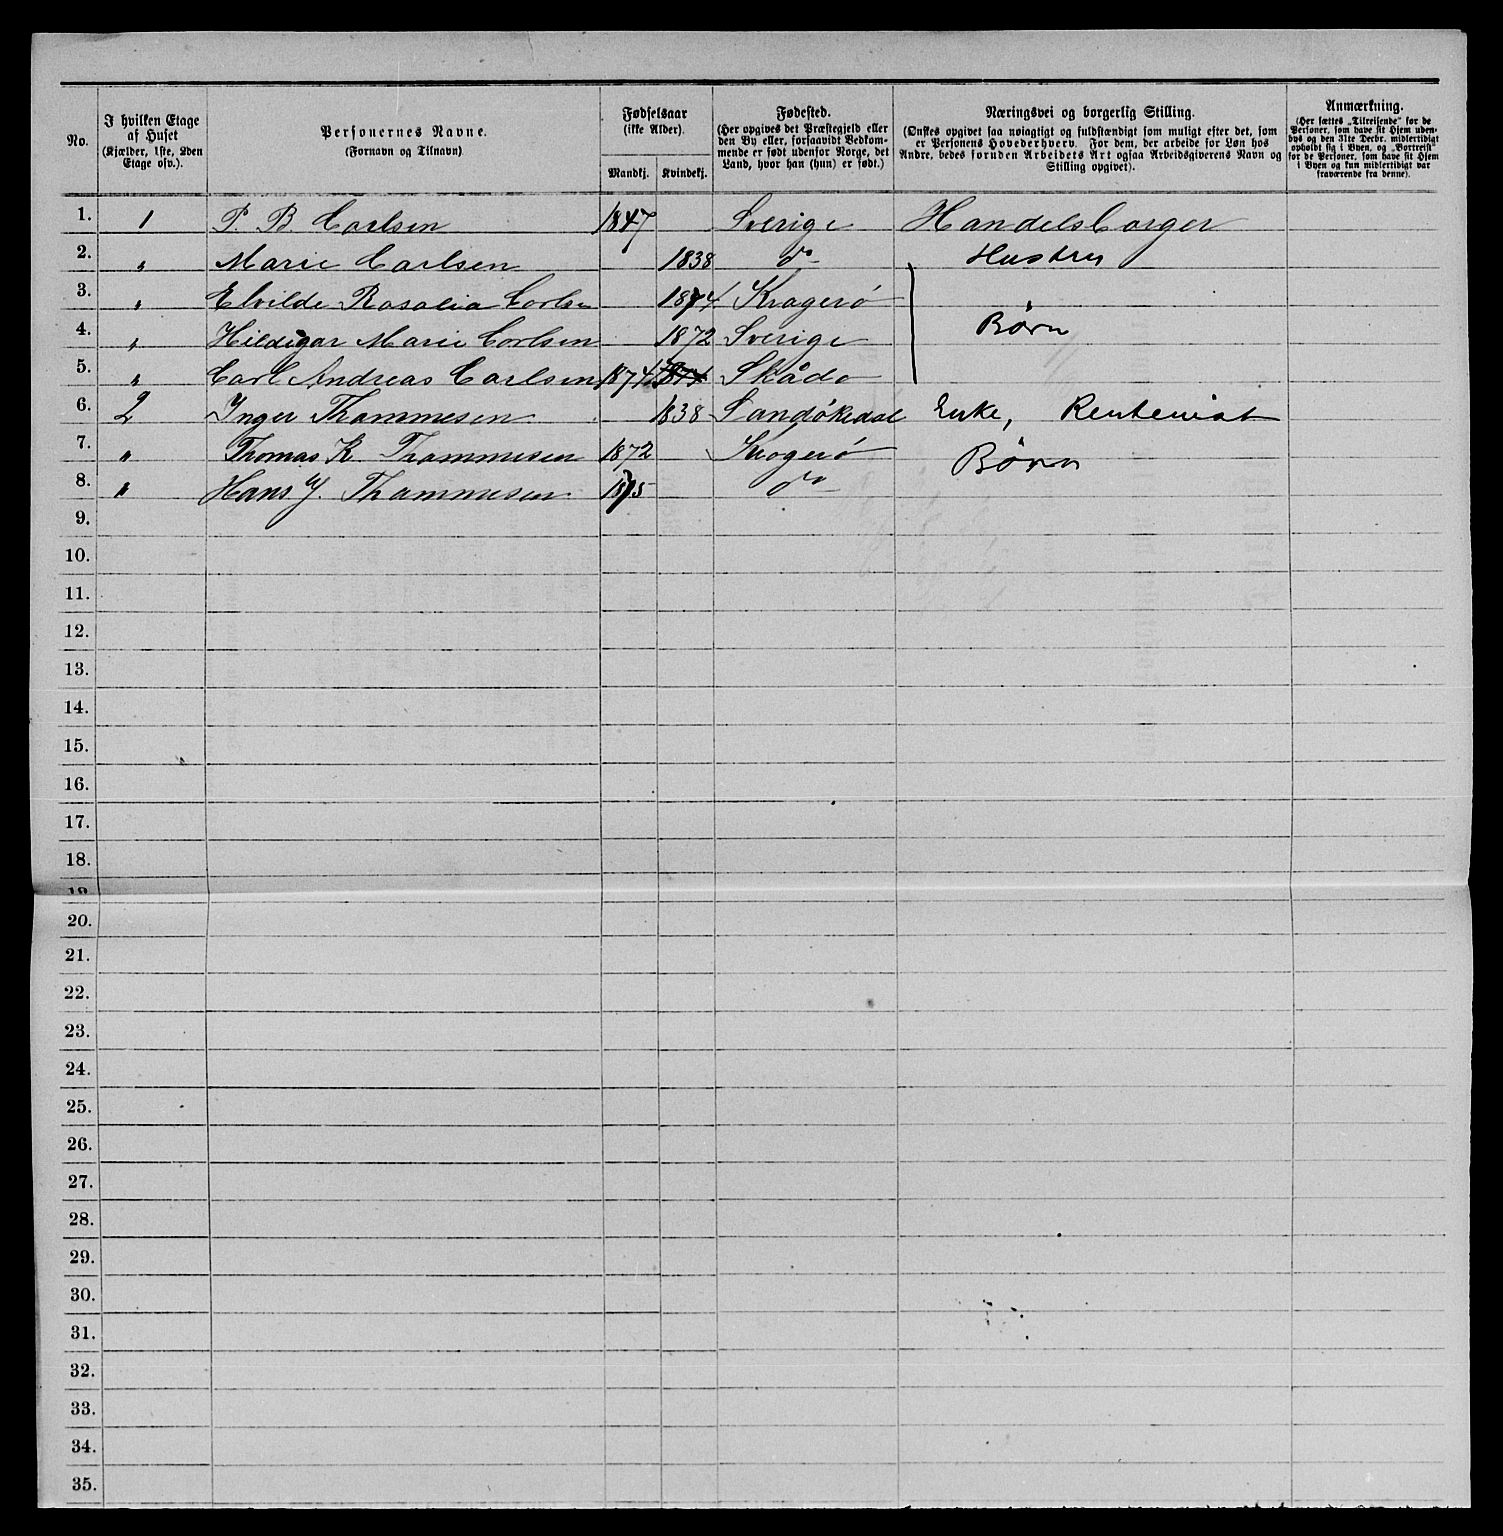 No. | I hvilken Etage af Huset (Kjælder, 1ste, 2den Etage osv.). | Personernes Navne. (Fornavn og Tilnavn) | Fødselsaar (ikke Alder). Mandkj. | Kvindekj. | Fødested. (Her opgives det Præstegjeld eller den By eller, forsaavidt Vedkommende er født udenfor Norge, det Land, hvor han (hun) er født.) | Næringsvei og borgerlig Stilling. (Ønskes opgivet saa nøiagtigt og fuldstændigt som muligt efter det, som er Personens Hovederhverv. For dem, der arbeide for Løn hos Andre, bedes foruden Arbeidets Art ogsaa Arbeidsgiverens Navn og Stilling opgivet). | Anmærkning. (Her sættes „Tilreisende" for de Personer, som have sit Hjem udenbys og den 31te Decbr. midlertidigt opholdt sig i Byen, og „Bortreist" for de Personer, som have sit Hjem i Byen og kun midlertidigt var fraværende fra denne).
1. | 1 | P. B. Carlsen | 1847 | | Sverige | Handelsborger
2. | " | Marie Carlsen | | 1838 | do | Hustru
3. | " | Elvilde Rosalia Carlsen | | 1874 | Kragerö
4. | " | Hildigar Marie Carlsen | | 1872 | Sverige | Børn
5. | " | Carl Andreas Carlsen | 1874 | | Skådö
6. | 2 | Inger Thommesen | | 1838 | Sandökedal | Enke, Rentenist
7. | " | Thomas K. Thommesen | 1872 | | Kragerö | Børn
8. | " | Hans J. Thommesen | 1875 | | do
9.
10.
11.
12.
13.
14.
15.
16.
17.
18.
19.
20.
21.
22.
23.
24.
25.
26.
27.
28.
29.
30.
31.
32.
33.
34.
35.